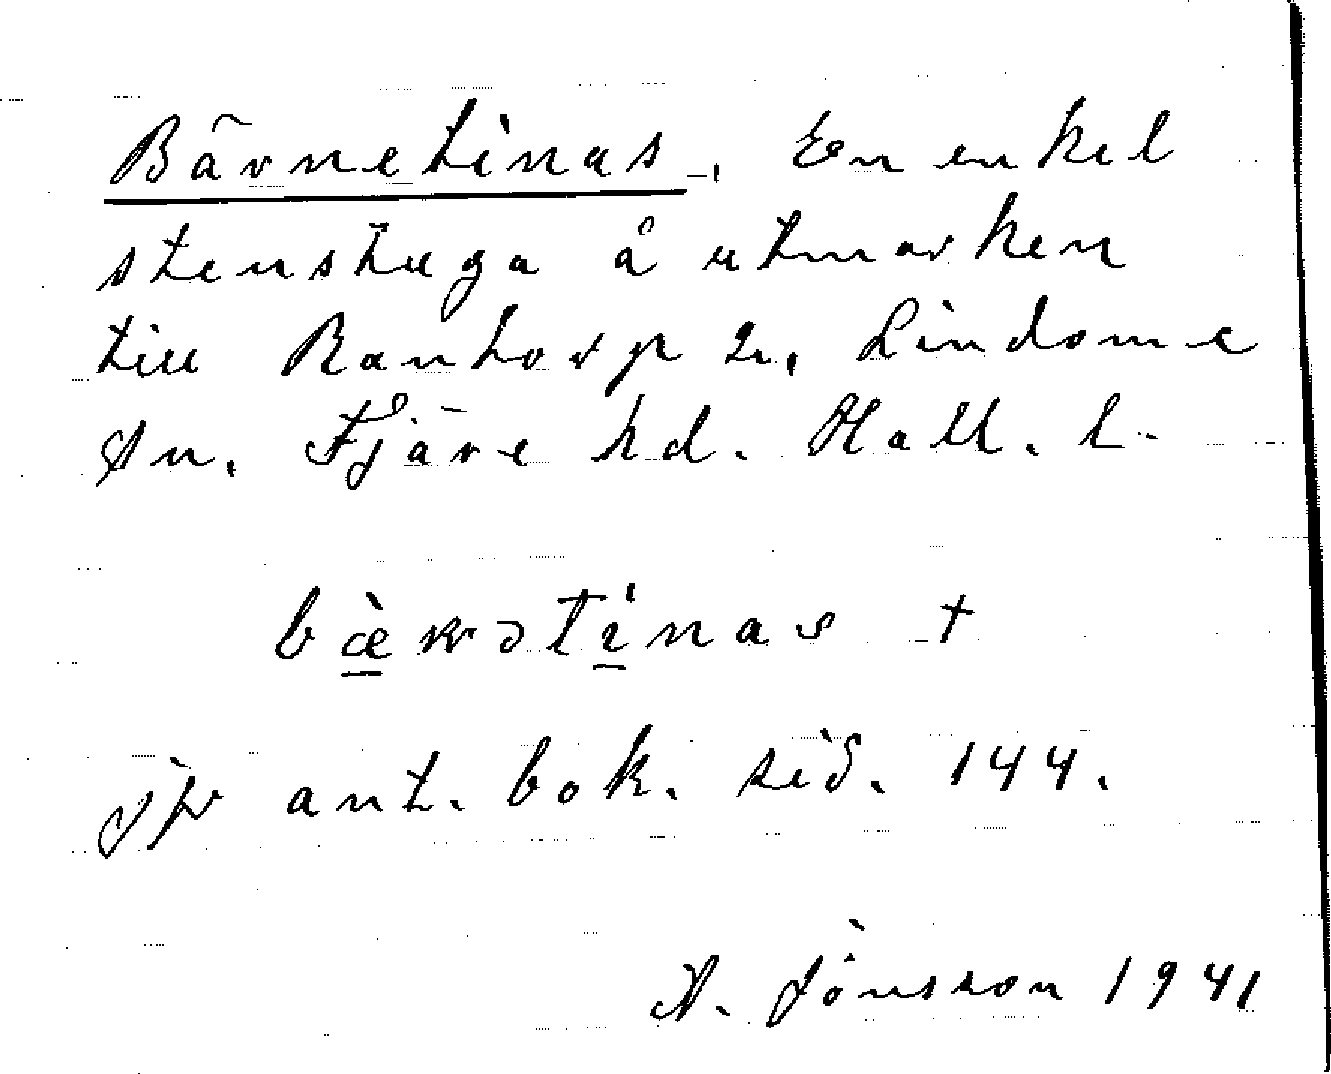 Bärnetinas. En enkel
stenstuga å utmarken
till Rantorp 2, Lindome
Sn. Fjäre hd. Hall. l.
ant. bok. sid. 144.
A. Jönsson 1941